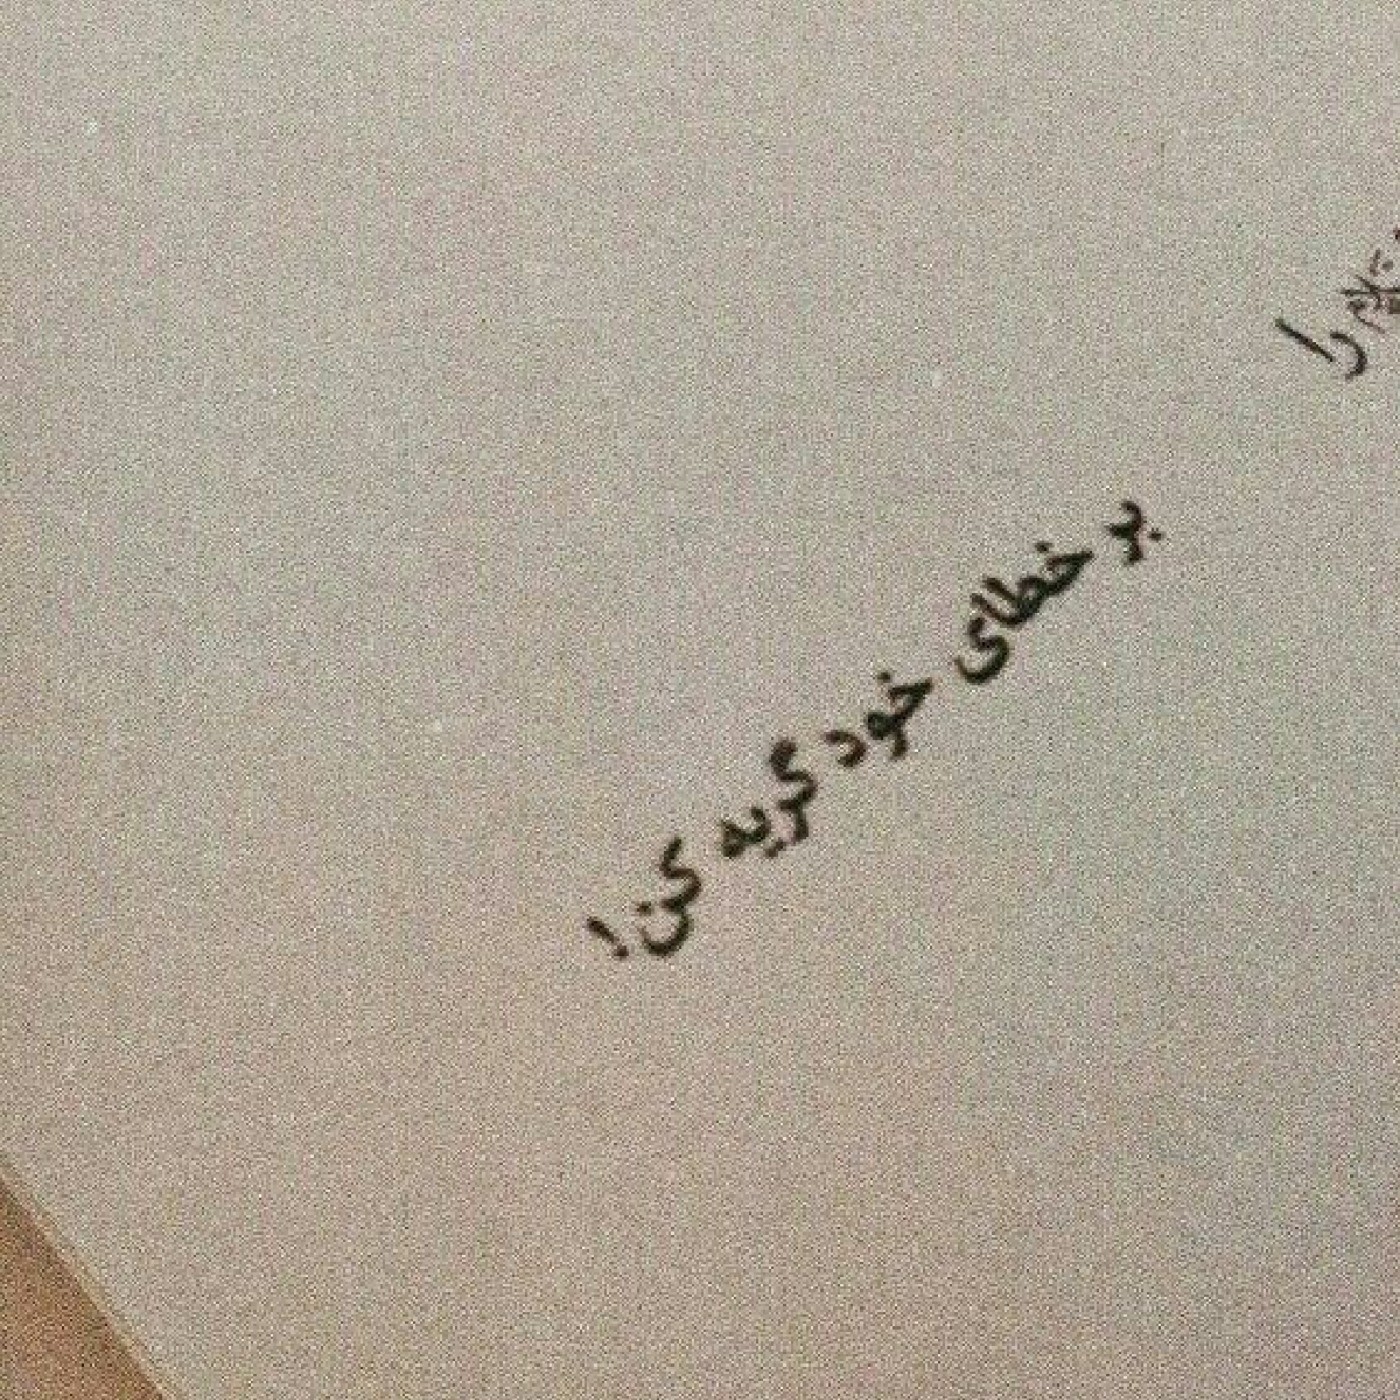 را
بر خطای خود گریه کن!